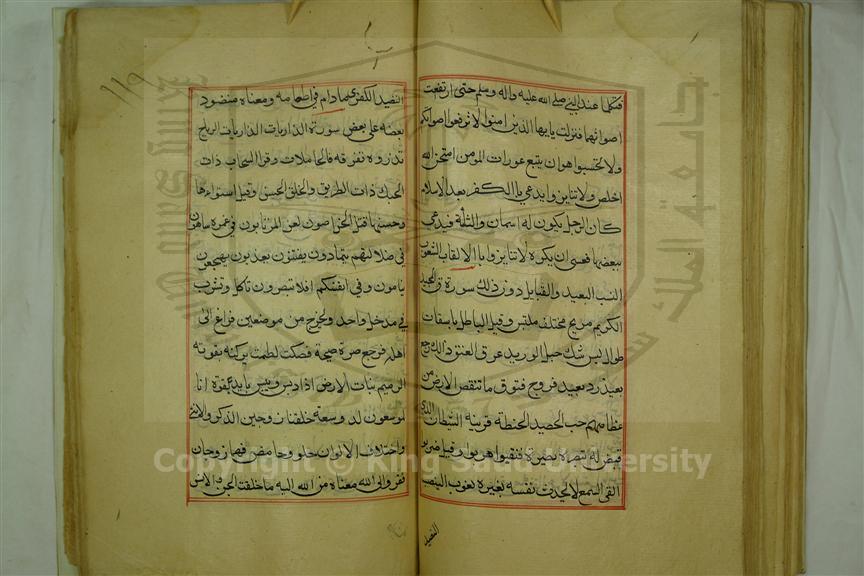 فتكلما عند النبي صلى الله عليه واله وسلم حتى ارتفعت
اصواتهما فنزلت يايها الذين امنوا لا ترفعوا اصواتكم
ولا تجسسوا هو ان يتبع عورات المومن امتحن الله
اخلص ولا تنابزوا يدعي بالكفر بعد الاسلام
كان الرجل يكون له اسمان والثلثة فيدعى
ببعضها فعسى ان يكره لا تنابزوا بالالقاب الشعوب
النسب البعيد والقبايل دون ذلك سورة ق المجيد
الكريم مريج مختلف ملتبس وقيل الباطل باسقات
طوال لبس شك حبل الوريد عرق العنق ذلك رجع
بعيد رد بعيد فروج فتوق ما تنقص الارض من
عظامهم حب الحصيد الحنطة قرينه الشيطان الذي
قيض له تبصرة بصيرة فنقبوا هربوا وقيل ضربوا
القى السمع لا يحدث نفسه بغيره لغوب النصب
النضيد
١١٩
النضيد الكفرى مادام في اكمامه ومعناه منضود
بعضه على بعض سورة الذاريات الذاريات الرياح
تذروه تفرقه فالحاملات وقرا السحاب ذات
الحبك ذات الطريق والخلق الحسن وقيل استواءها
وحسنها قتل الخراصون لعن المرتابون في غمرة ساهون
في ضلالتهم يتمادون يفتنون يعذبون يهجعون
ينامون وفي انفسكم افلا تبصرون تاكل وتشرب
في مدخل واحد ويخرج من موضعين فراغ الى
اهله فرجع صرة صيحة فصكت لطمت بركنه بقوته
الرميم نبات الارض اذا ديس ويبس بايد بقوة انا
لموسعون لذو سعة خلقنا زوجين الذكر والانثى
واختلاف الالوان حلو وحامض فهما زوجان
ففروا الى الله معناه من الله اليه ما خلقت الجن والانس
Copyright © King Saud University